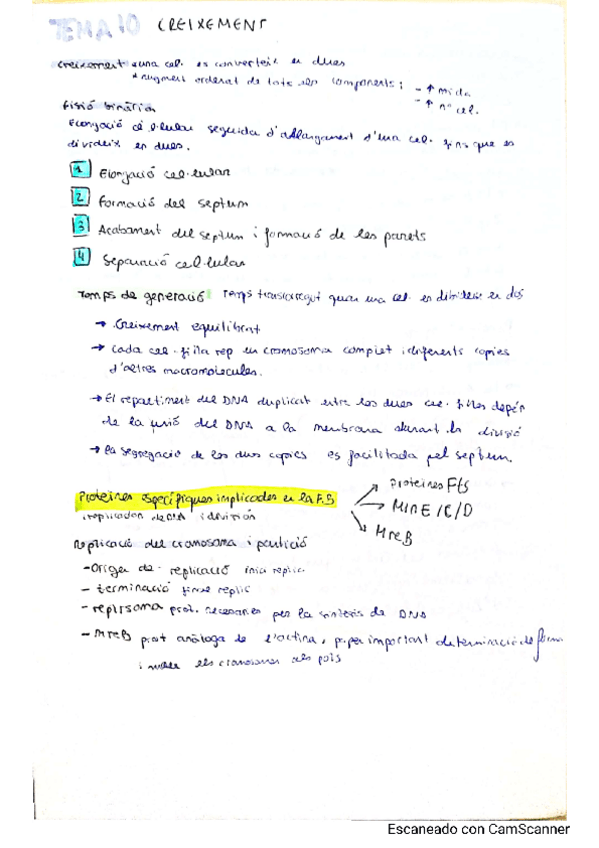 TEMA 10 CREIXEMENT
Creixement • una cel. es converteix en dues
• augment ordenat de tots els components: - ↑ mida
- ↑ nº cel.
Fisió binària
Elongació cel·lular seguida d'allargament d'una cel. fins que es
divideix en dues.
1 Elongació cel·lular
2 Formació del septum
3 Acabament del septum i formació de les parets
4 Separació cel·lular
Temps de generació Temps transcorregut quan una cel. en divideix en dos
→ Creixement equilibrat
→ Cada cel. filla rep un cromosoma complet i diferents copies
d'altres macromolecules.
→ El repartiment del DNA duplicat entre les dues cel. filles depèn
de la unió del DNA a la membrana durant la divisió
→ La segregació de les dues copies es facilitada pel septum.
Proteines específiques implicades en la F.B
→ Proteines Fts
→ MinE/C/D
→ MreB
i divisió
Replicació del cromosoma i partició
- Origen de replicació inici replic
- terminació final replic
- replisoma prot. necesaries per la sintesis de DNA
- MreB prot anàloga de l'actina, paper important determinació de forma
i els cromosomes als pols
Escaneado con CamScanner